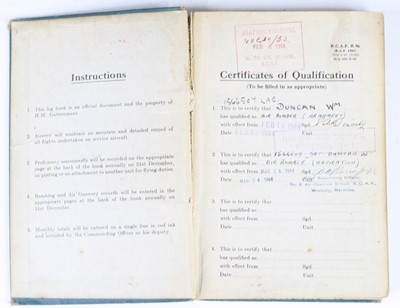 Instructions
1 This log book is an official document and the property of
H.M. Government
2 Airerew will maintain an accurate and detailed record of
all flights undertaken on service aircraft.
3 Proficiency assessments will be recorded on the appropriate
page at the back of the book annually on 31st December,
on posting or on attachment to another unit for flying duties.
4 Bombing and Air Gunnery records will be entered in the
appropriate pages at the back of the book annually on
31st December.
5 Monthly totals will be entered on a single line in red ink
and initialed by the Commanding Officer or his deputy.
R.C.A.F. R.
Certificates of Qualification
(To be filled in as appropriate)
LAC. DUNCAN Wm
1. This is to certify that
has qualified as AIR BOMBER (ARMAMENT)
with effect from Sgd.
Date Unit
2. This is to certify that DUNCAN W
has qualified as AIR BOMBER (NAVIGATION)
with effect from Sgd.
Date Unit
3. This is to certify that
has qualified as
with effect from Sgd.
Date Unit
4. This is to certify that
has qualified as
with effect from Sgd.
Date Unit